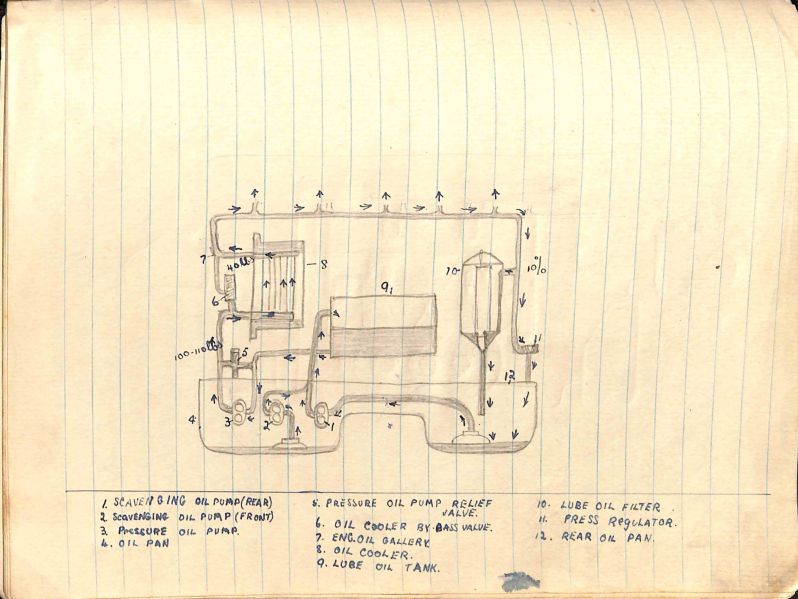 7
40lbs
8
9,
10
10%
6
11
100-110lbs
5
12,
4
3
2
1
1. SCAVENGING OIL PUMP (REAR)
2. SCAVENGING OIL PUMP (FRONT)
3. PRESSURE OIL PUMP.
4. OIL PAN
5. PRESSURE OIL PUMP RELIEF
VALVE.
6. OIL COOLER BY-BASS VALVE.
7. ENG.OIL GALLERY.
8. OIL COOLER.
9. LUBE OIL TANK.
10. LUBE OIL FILTER.
11. PRESS REGULATOR.
12. REAR OIL PAN.